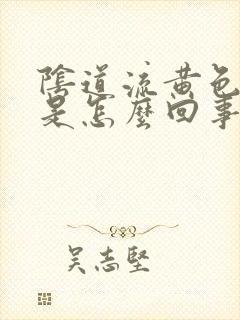 陰道流黃色
是怎麼回事
吳志堅